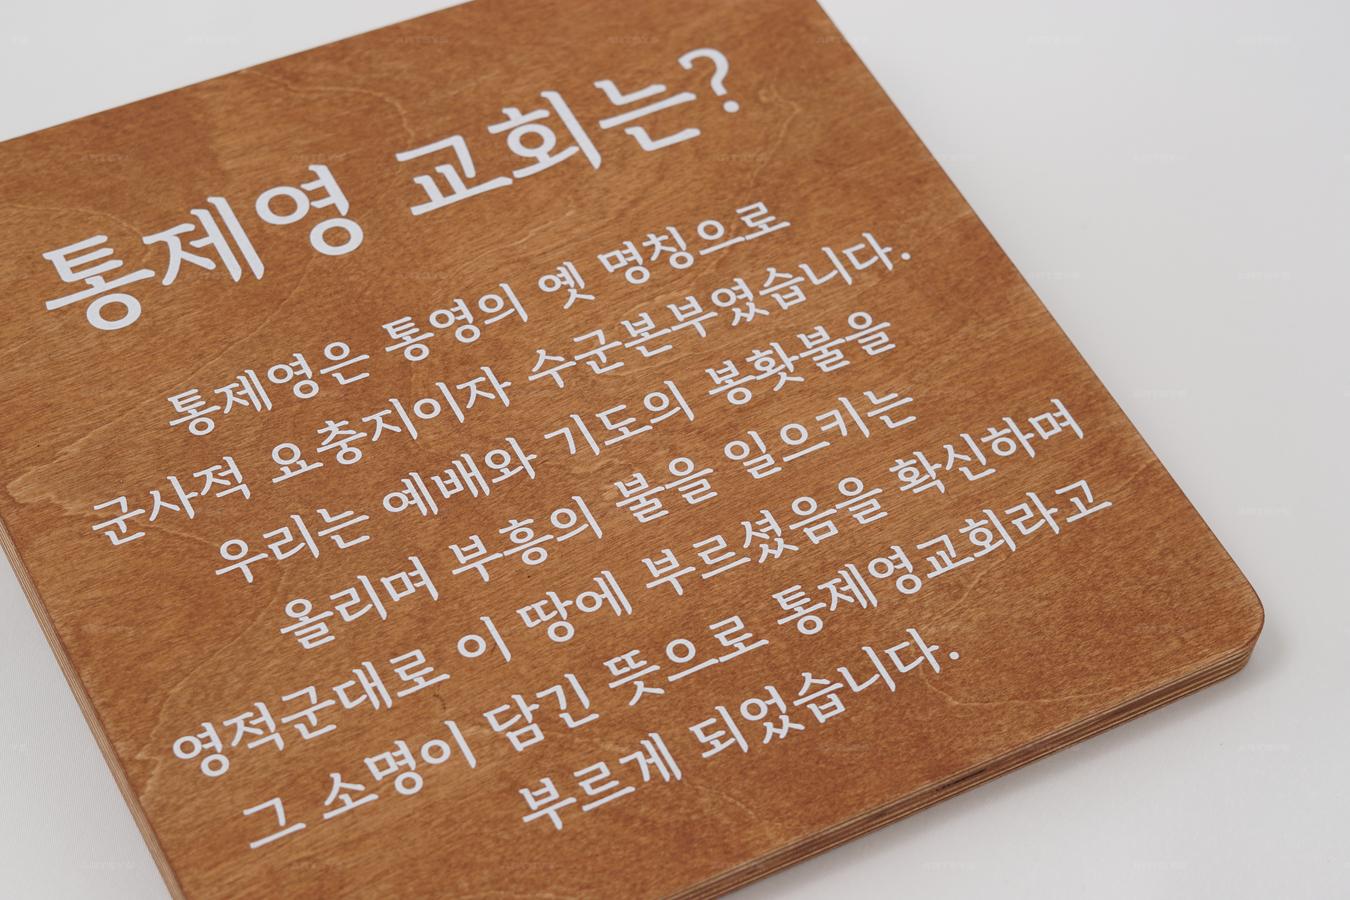 통제영 교회는?
통제영은 통영의 옛 명칭으로
군사적 요충지이자 수군본부였습니다.
우리는 예배와 기도의 봉홧불을
올리며 부흥의 불을 일으키는
영적군대로 이 땅에 부르셨음을 확신하며
그 소명이 담긴 뜻으로 통제영교회라고
부르게 되었습니다.